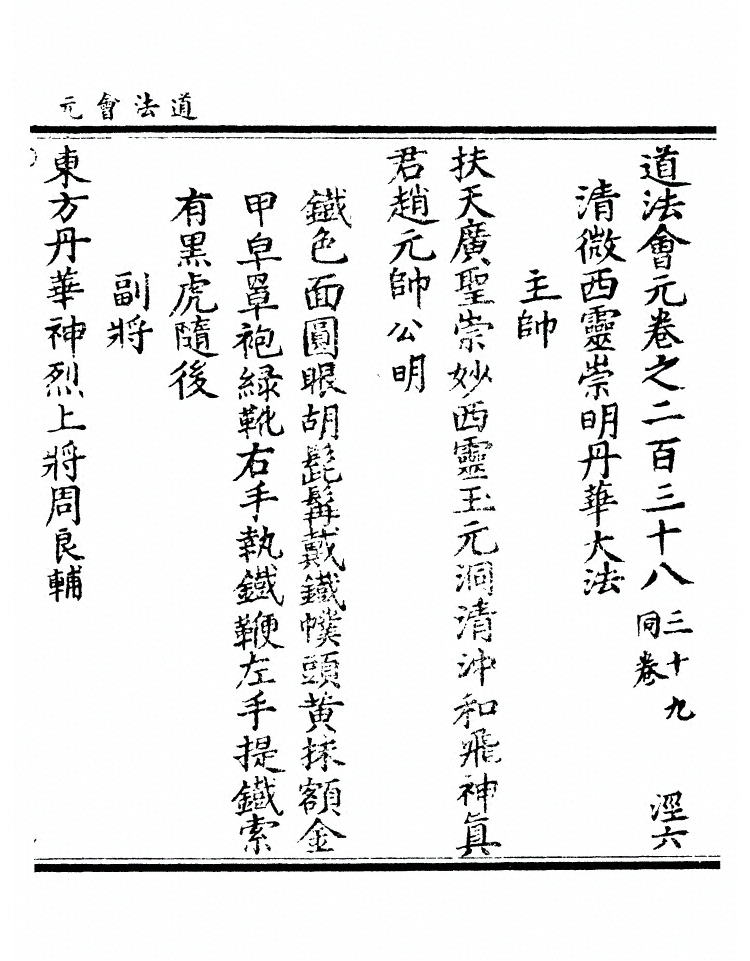 道法會元
道法會元卷之二百三十八 三十九同卷 涇六
清微西靈崇明丹華大法
主帥
扶天廣聖崇妙西靈玉元洞清沖和飛神眞
君趙元帥公明
鐵色面圓眼胡髭髯戴鐵幞頭黃抹額金
甲皁罩袍綠靴右手執鐵鞭左手提鐵索
有黑虎隨後
副將
東方丹華神烈上將周良輔